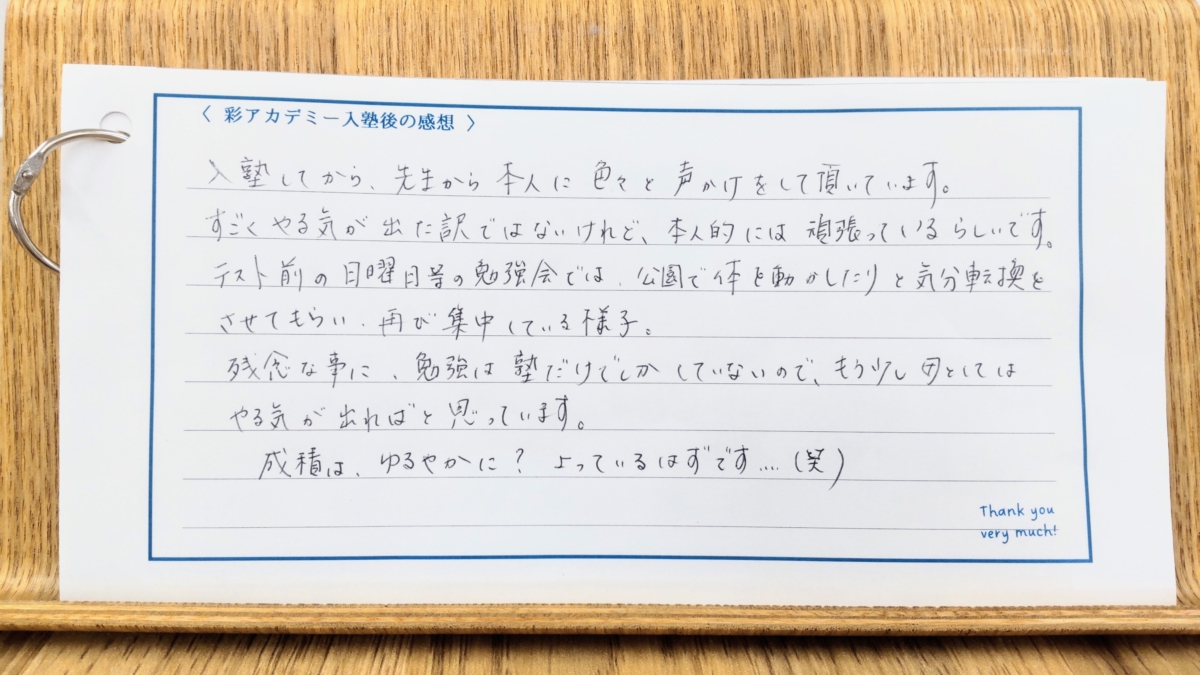 〈 彩アカデミー入塾後の感想 〉
入塾してから、先生から本人に色々と声かけをして頂いています。
すごくやる気が出た訳ではないけれど、本人的には頑張っているらしいです。
テスト前の日曜日等の勉強会では、公園で体を動かしたりと気分転換を
させてもらい、再び集中している様子。
残念な事に、勉強は塾だけでしかしていないので、もう少し母としては
やる気が出ればと思っています。
成積は、ゆるやかに? よっているはずです....(笑)
Thank you
very much!